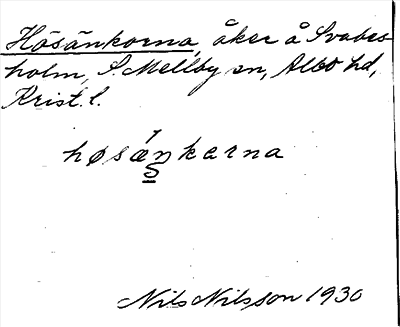 Hösänkorna, åker å Svabes-
holm, S. Mellby sn, Albo hd,
Krist. l.
høsæŋkarna
Nils Nilsson 1930